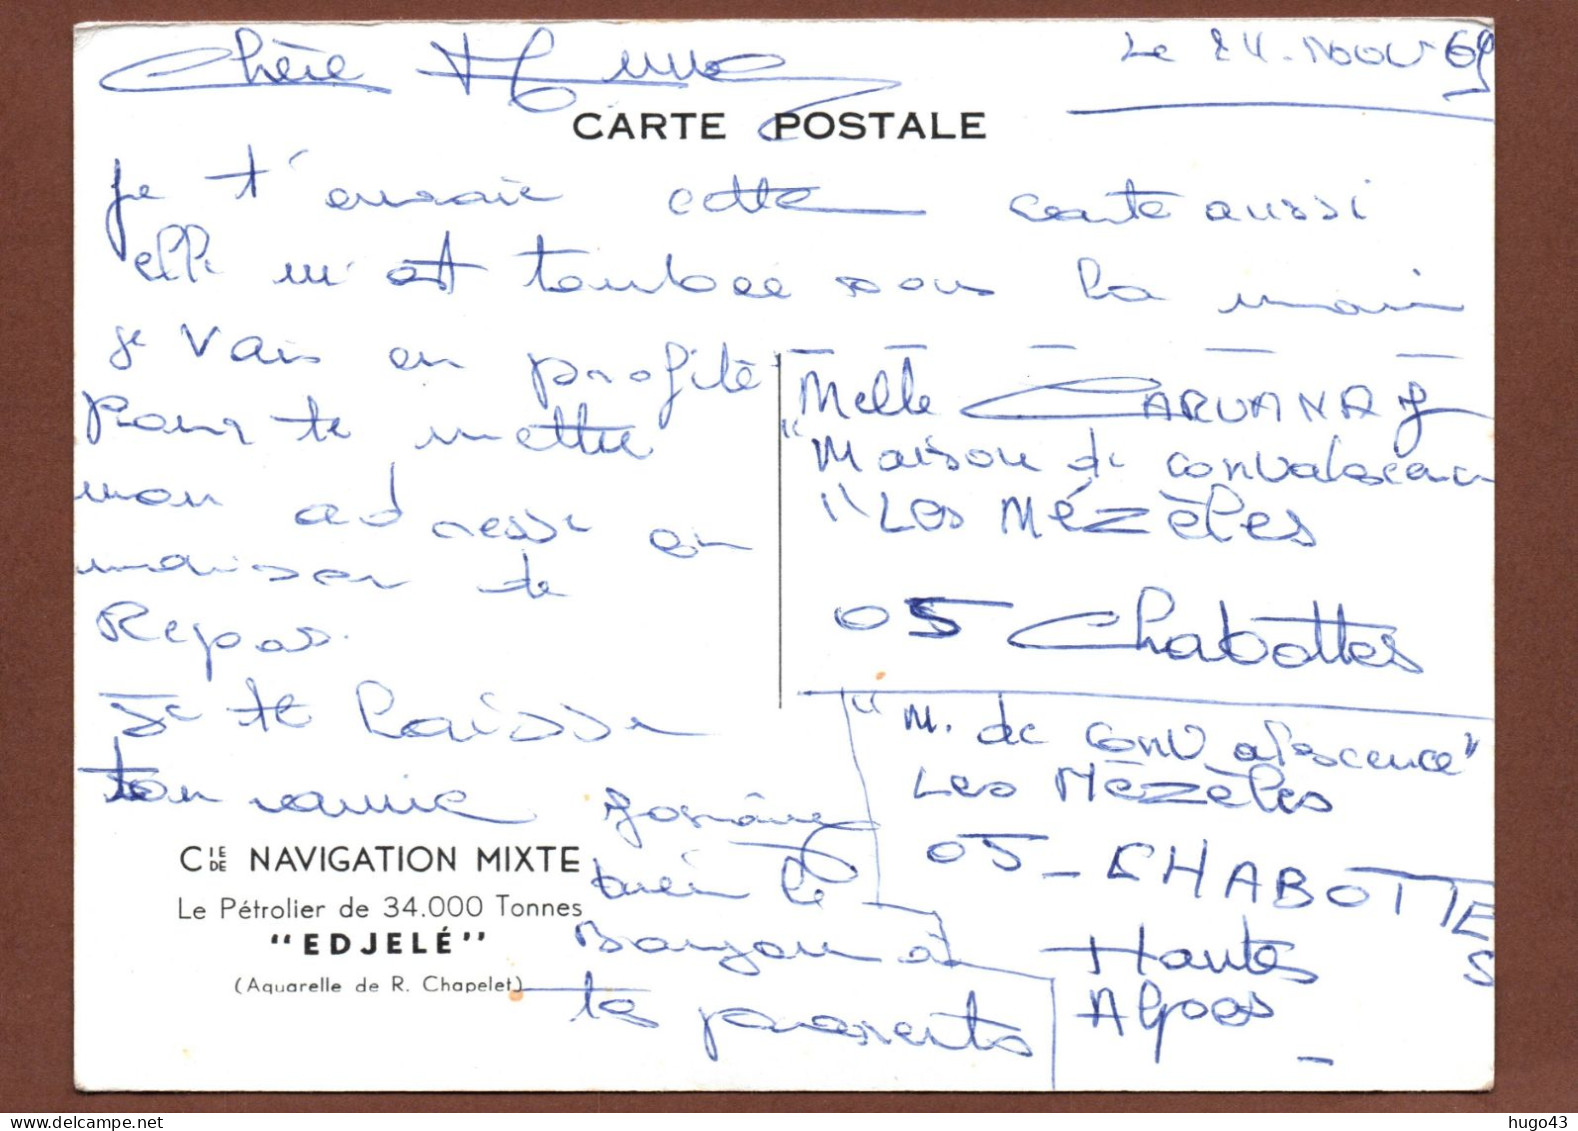 Le 24. Nov 69
Chère
CARTE POSTALE
Je t'envoie cette carte aussi
elle m'est tombée sous la main
je vais en profité
pour te mettre
mon adresse en
maison de
Repos.
Je te laisse
ton amie Josiane
bien le
Bonjour à
tes parents
Melle CARUANA J
"Maison de convalescence
"Les Mézèles
05 Chabottes
"M. de convalescence"
Les Mézèles
05_CHABOTTES
Hautes
Alpes_
CIE DE NAVIGATION MIXTE
Le Pétrolier de 34.000 Tonnes
"EDJELÉ"
(Aquarelle de R. Chapelet)
hugo43